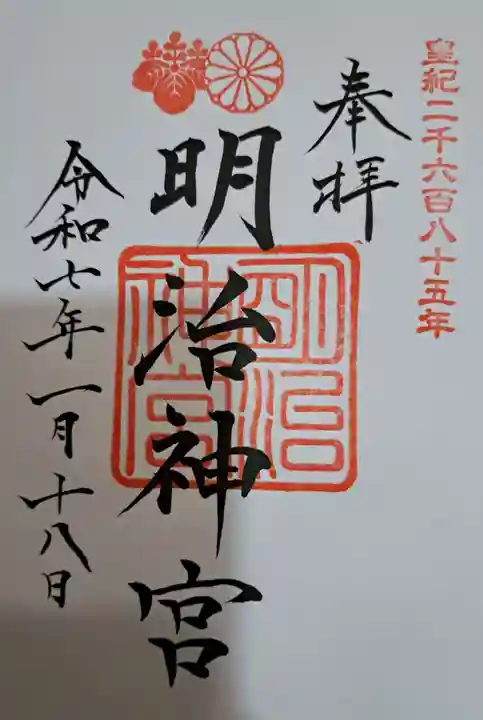 皇紀二千六百八十五年
奉拝
明治神宮
明治神宮
令和七年一月十八日